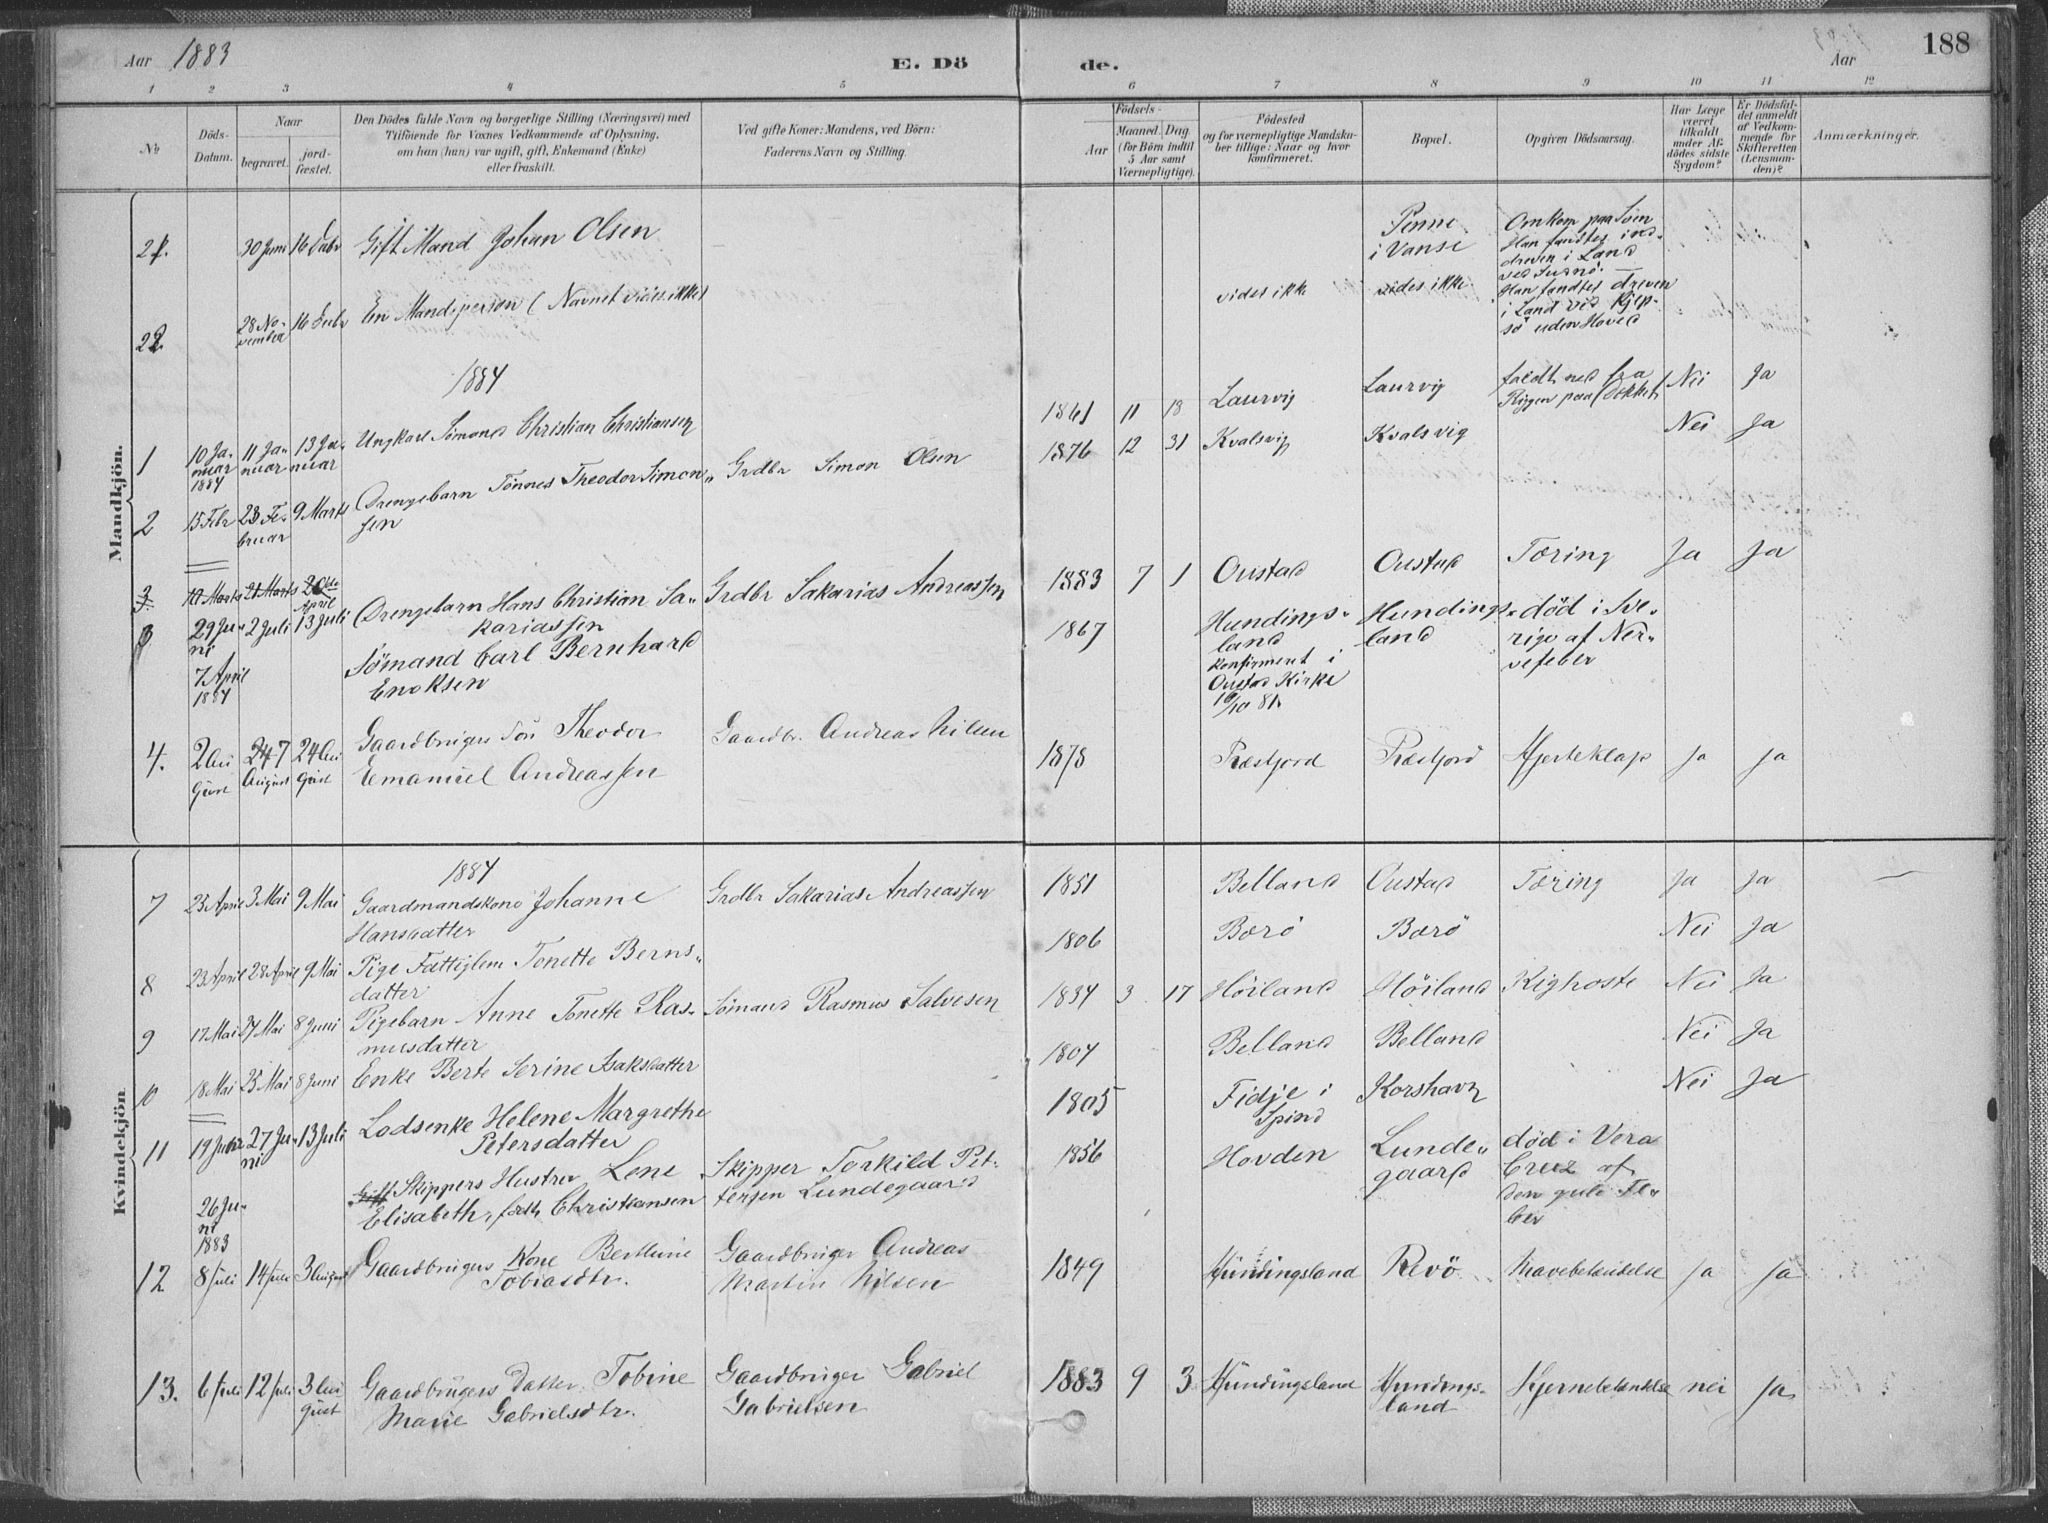 Aar 1883
E. Dö
de.
Aar
188
1 2 3 4 5 6 7 8 9 10 11 12
№
Döds-
Datum.
Naar
begravet.
jord-
fæstet.
Den Dödes fulde Navn og borgerlige Stilling (Næringsvei) med
Tilföiende for Voxnes Vedkommende af Oplysning,
om han (hun) var ugift, gift, Enkemand (Enke)
eller fraskilt.
Ved gifte Koner: Mandens, ved Börn:
Faderens Navn og Stilling.
Födsels-
Aar
Maaned. Dag
(for Börn indtil
5 Aar samt
Værnepligtige).
Födested
og for værnepligtige Mandska-
ber tillige: Naar og hvor
konfirmeret.
Bopæl.
Opgiven Dödsaarsag.
Har Læge
været
tilkaldt
under Af-
dödes sidste
Sygdom?
Er Dödsfal-
det anmeldt
af Vedkom-
mende for
Skifteretten
(Lensman-
den)?
Anmærkninger.
Mandkjön.
21. 30 Juni 16 Debr Gift Mand Johan Olsen
Penne
i Vanse
Omkom paa Söen
Han fandtes ind-
dreven i Land
ved
22. 28 No-
vember 16 Debr En Mandsperson (Navnet vides ikke)
vides ikke vides ikke Han fandtes dreven
i Land ved
sö uden Hoved
1884
1 10 Ja-
nuar
1884 11 Ja-
nuar 13 Ja-
nuar Ungkarl Simond Christian Christiansen
1861 11 18 Laurvig Laurvig faldt ned fra
Riggen paa Dækket Nei Ja
2 15 Febr 23 Fe-
bruar 9 Marts Drengebarn Tönnes Theodor Simon-
sen Grdbr Simon Olsen
1876 12 31 Kvalsvig Kvalsvig Nei Ja
3 Marts 21 Marts
April Drengebarn Hans Christian Sa-
kariassen Grdbr Sakarias Andreassen
1883 7 1 Oustad Oustad Tæring Ja Ja
29 Ju-
ni 2 Juli 13 Juli
7 April
1884 Sömand Carl Bernhard
Enoksen
1867 Hundings-
land
Konfirmert i
Oustad Kirke
/10 81. Hundings-
land död i Sve-
rige af Ner-
vefeber
4. 2 Au
gust 24 7
August 24 Au
gust Gaardbrugers Sön Theodor
Emanuel Andreassen Gaardbr. Andreas Nilsen
1878 Træfjord Træfjord Hjerteklap ja ja
Kvindekjön
1884
7 23 April 3 Mai 9 Mai Gaardmandskone Johanne
Hansdatter Grdbr Sakarias Andreassen
1851 Belland Oustad Tæring Ja Ja
8 23 April 28 April 9 Mai Pige Fattiglem Tonette Berns-
datter
1806 Borö Borö Nei Ja
9 17 Mai 27 Mai 8 Juni Pigebarn Anne Tonette Ras-
musdatter Sömand Rasmus Salvesen
1834 3 17 Höiland Höiland Kighoste Nei Ja
10 18 Mai 25 Mai 8 Juni Enke Berte Serine Isaksdatter
1804 Belland Belland Nei Ja
11 19 Juni 27 Ju-
ni 13 Juli Lodsenke Helene Margrethe
Petersdatter
1805 Fidje i
Spind Korshavn Nei Ja
26 Ju-
ni
1883 Gift Skippers Hustru Lene
Elisabeth, födt Christiansen Skipper Torkild Pet-
tersen Lundegaard
1856 Hovden Lunde-
gaard död i Vera
Cruz af
den gule Fe-
ber
12 8 Juli 14 Juli 3 August Gaardbrugers Kone Bertine
Tobiasdtr. Gaardbruger Andreas
Martin Nilsen
1849 Hundingsland Revö Mavebetændelse ja ja
13. 6 Juli 12 Juli 3 Au
gust Gaardbrugers Datter Tobine
Marie Gabrielsdtr. Gaardbruger Gabriel
Gabrielsen
1883 9 3 Hundingsland Hundings-
land Hjernebetændelse nei ja